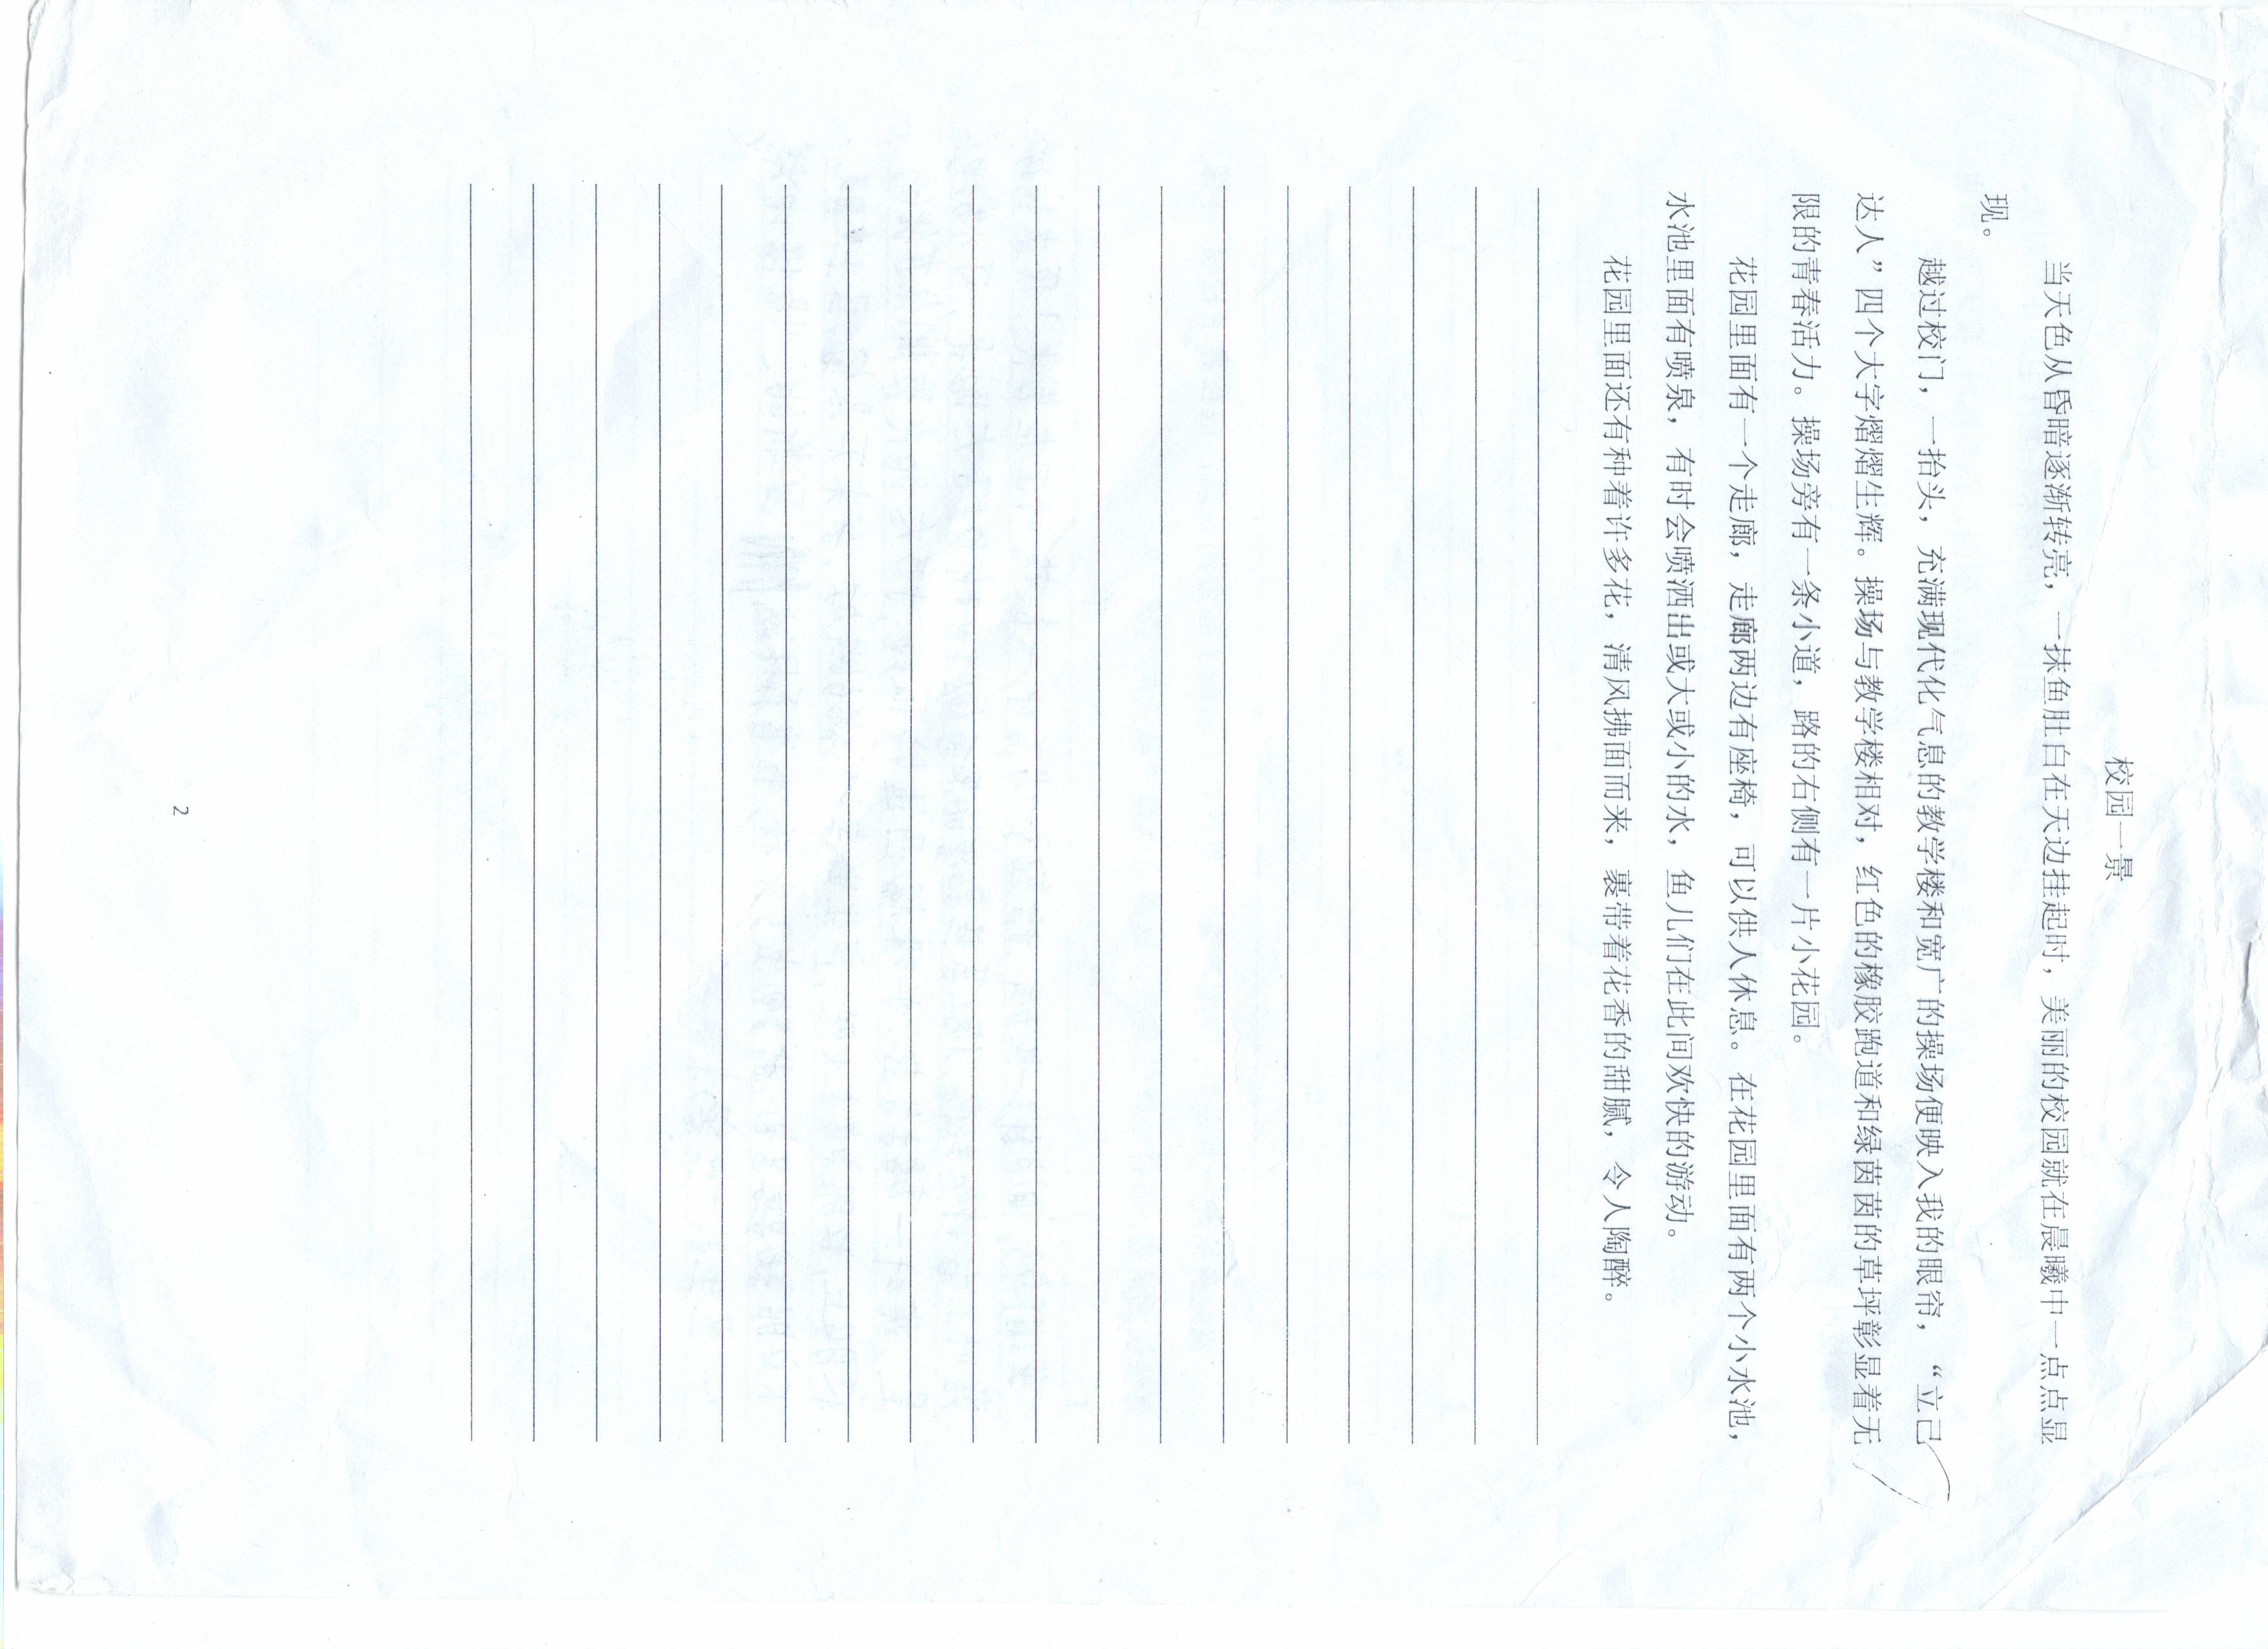 校园一景
当天色从昏暗逐渐转亮，一抹鱼肚白在天边挂起时，美丽的校园就在晨曦中一点点显
现。
越过校门，一抬头，充满现代化气息的教学楼和宽广的操场便映入我的眼帘，“立己
达人”四个大字熠熠生辉。操场与教学楼相对，红色的橡胶跑道和绿茵茵的草坪彰显着无
限的青春活力。操场旁有一条小道，路的右侧有一片小花园。
花园里面有一个走廊，走廊两边有座椅，可以供人休息。在花园里面有两个小水池，
水池里面有喷泉，有时会喷洒出或大或小的水，鱼儿们在此间欢快的游动。
花园里面还有种着许多花，清风拂面而来，裹带着花香的甜腻，令人陶醉。
2